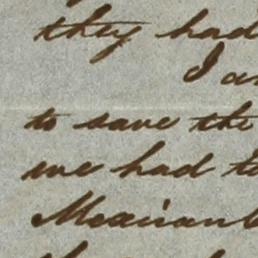 they had
I a
to save the
we had to
Mexican